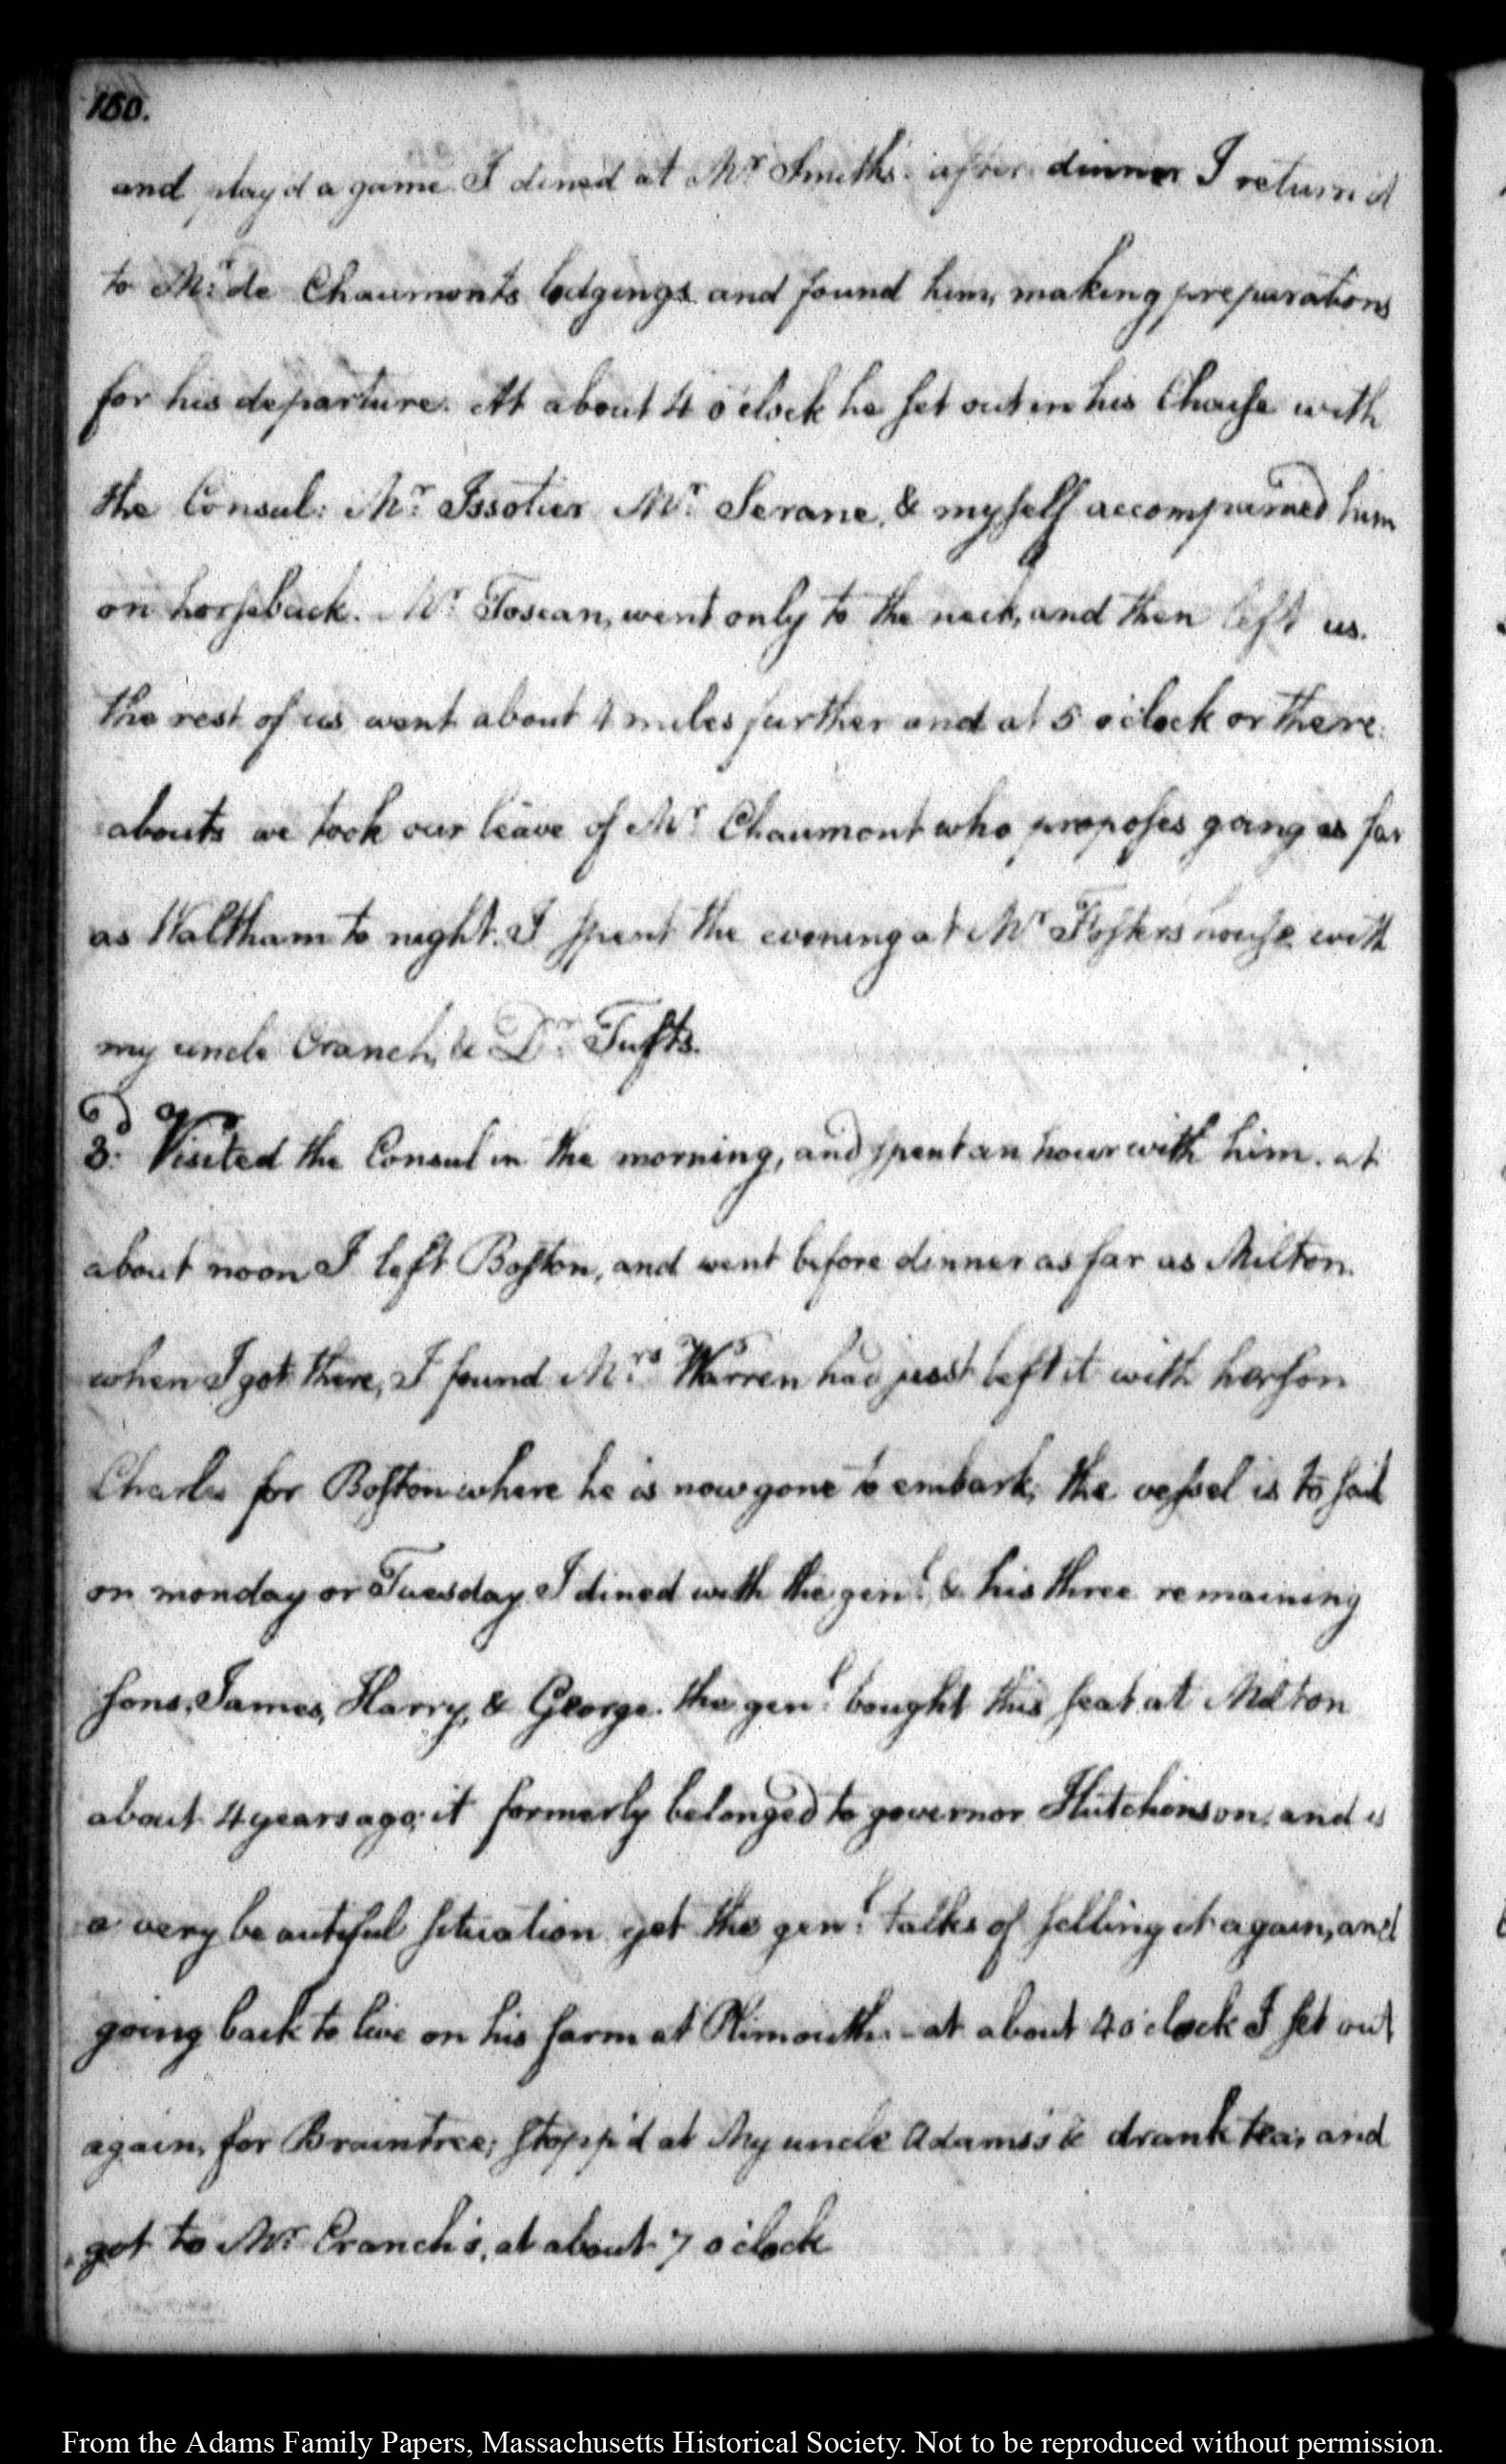 160.
and play'd a game. I dined at Mr. Smith's. after dinner I return'd
to Mr. de Chaumont's lodgings and found him, making preparations
for his departure. At about 4 o'clock he set out in his Chaise with
the Consul: Mr. Issotier Mr. Serane, & myself accompanied him
on horseback. Mr. Toscan, went only to the neck, and then left us.
the rest of us went about 4 miles further and at 5 o'clock or there
abouts we took our leave of Mr. Chaumont who proposes going as far
as Waltham to night. I spent the evening at Mr. Foster's house with
my uncle Cranch, & Dr. Tufts.
3d. Visited the Consul in the morning, and spent an hour with him. at
about noon I left Boston, and went before dinner as far as Milton.
when I got there, I found Mrs. Warren had just left it with her son
Charles for Boston where he is now gone to embark; the vessel is to sail
on monday or Tuesday I dined with the genl. & his three remaining
sons, James, Harry, & George. the genl. bought this seat at Milton
about 4 years ago; it formerly belonged to governor Hutchinson, and is
a very beautiful situation yet the genl. talks of selling it again, and
going back to live on his farm at Plimouth. - at about 4 o'clock I set out
again, for Braintree; stopp'd at My uncle Adams's & drank tea, and
got to Mr. Cranch's, at about 7 o'clock
From the Adams Family Papers, Massachusetts Historical Society. Not to be reproduced without permission.